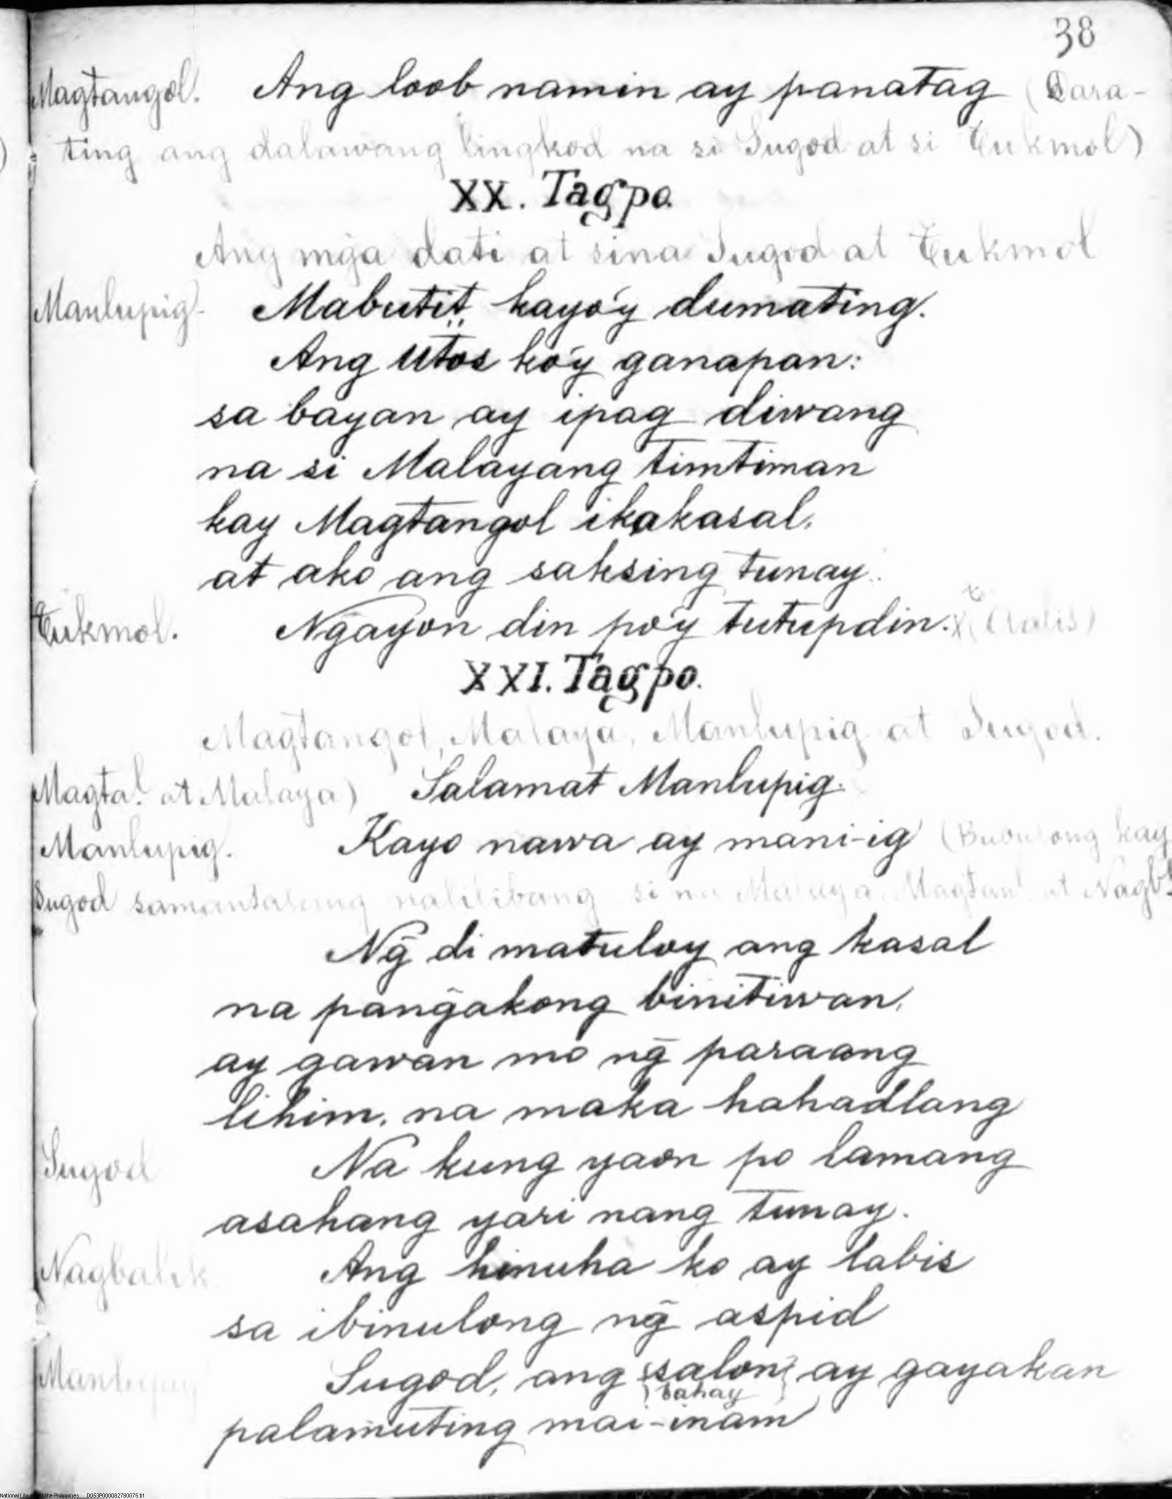 38
Magtangol. Ang loob namin ay panatag (Dara-
ting ang dalawang lingkod na si Sugod at si Tukmol)
XX. Tagpo.
Ang mga dati at sina Sugod at Tukmol
Manlupig- Mabutit kayo'y dumating.
Ang utos ko'y ganapan:
sa bayan ay ipag diwang
na si Malayang timtiman
kay Magtangol ikakasal.
at ako ang saksing tunay.
Tukmol. Ngayon din po'y tutupdin. (Aalis)
XXI. Tagpo.
Magtangol, Malaya, Manlupig at Sugod.
Magtal. at Malaya) Salamat Manlupig.
Manlupig. Kayo nawa ay mani-ig (Bubulong kay
Sugod samantalang nalilibang si na Malaya, Magtanl. at Nagb.
Ng̃ di matuloy ang kasal
na pang̃akong binitiwan,
ay gawan mo ng̃ paraang
lihim, na maka hahadlang
Sugod Na kung yaon po lamang
asahang yari nang tunay.
Nagbalik Ang hinuha ko ay labis
sa ibinulong ng̃ aspid
Manlupig Sugod, ang salon ay gayakan
bahay
palamuting mai-inam